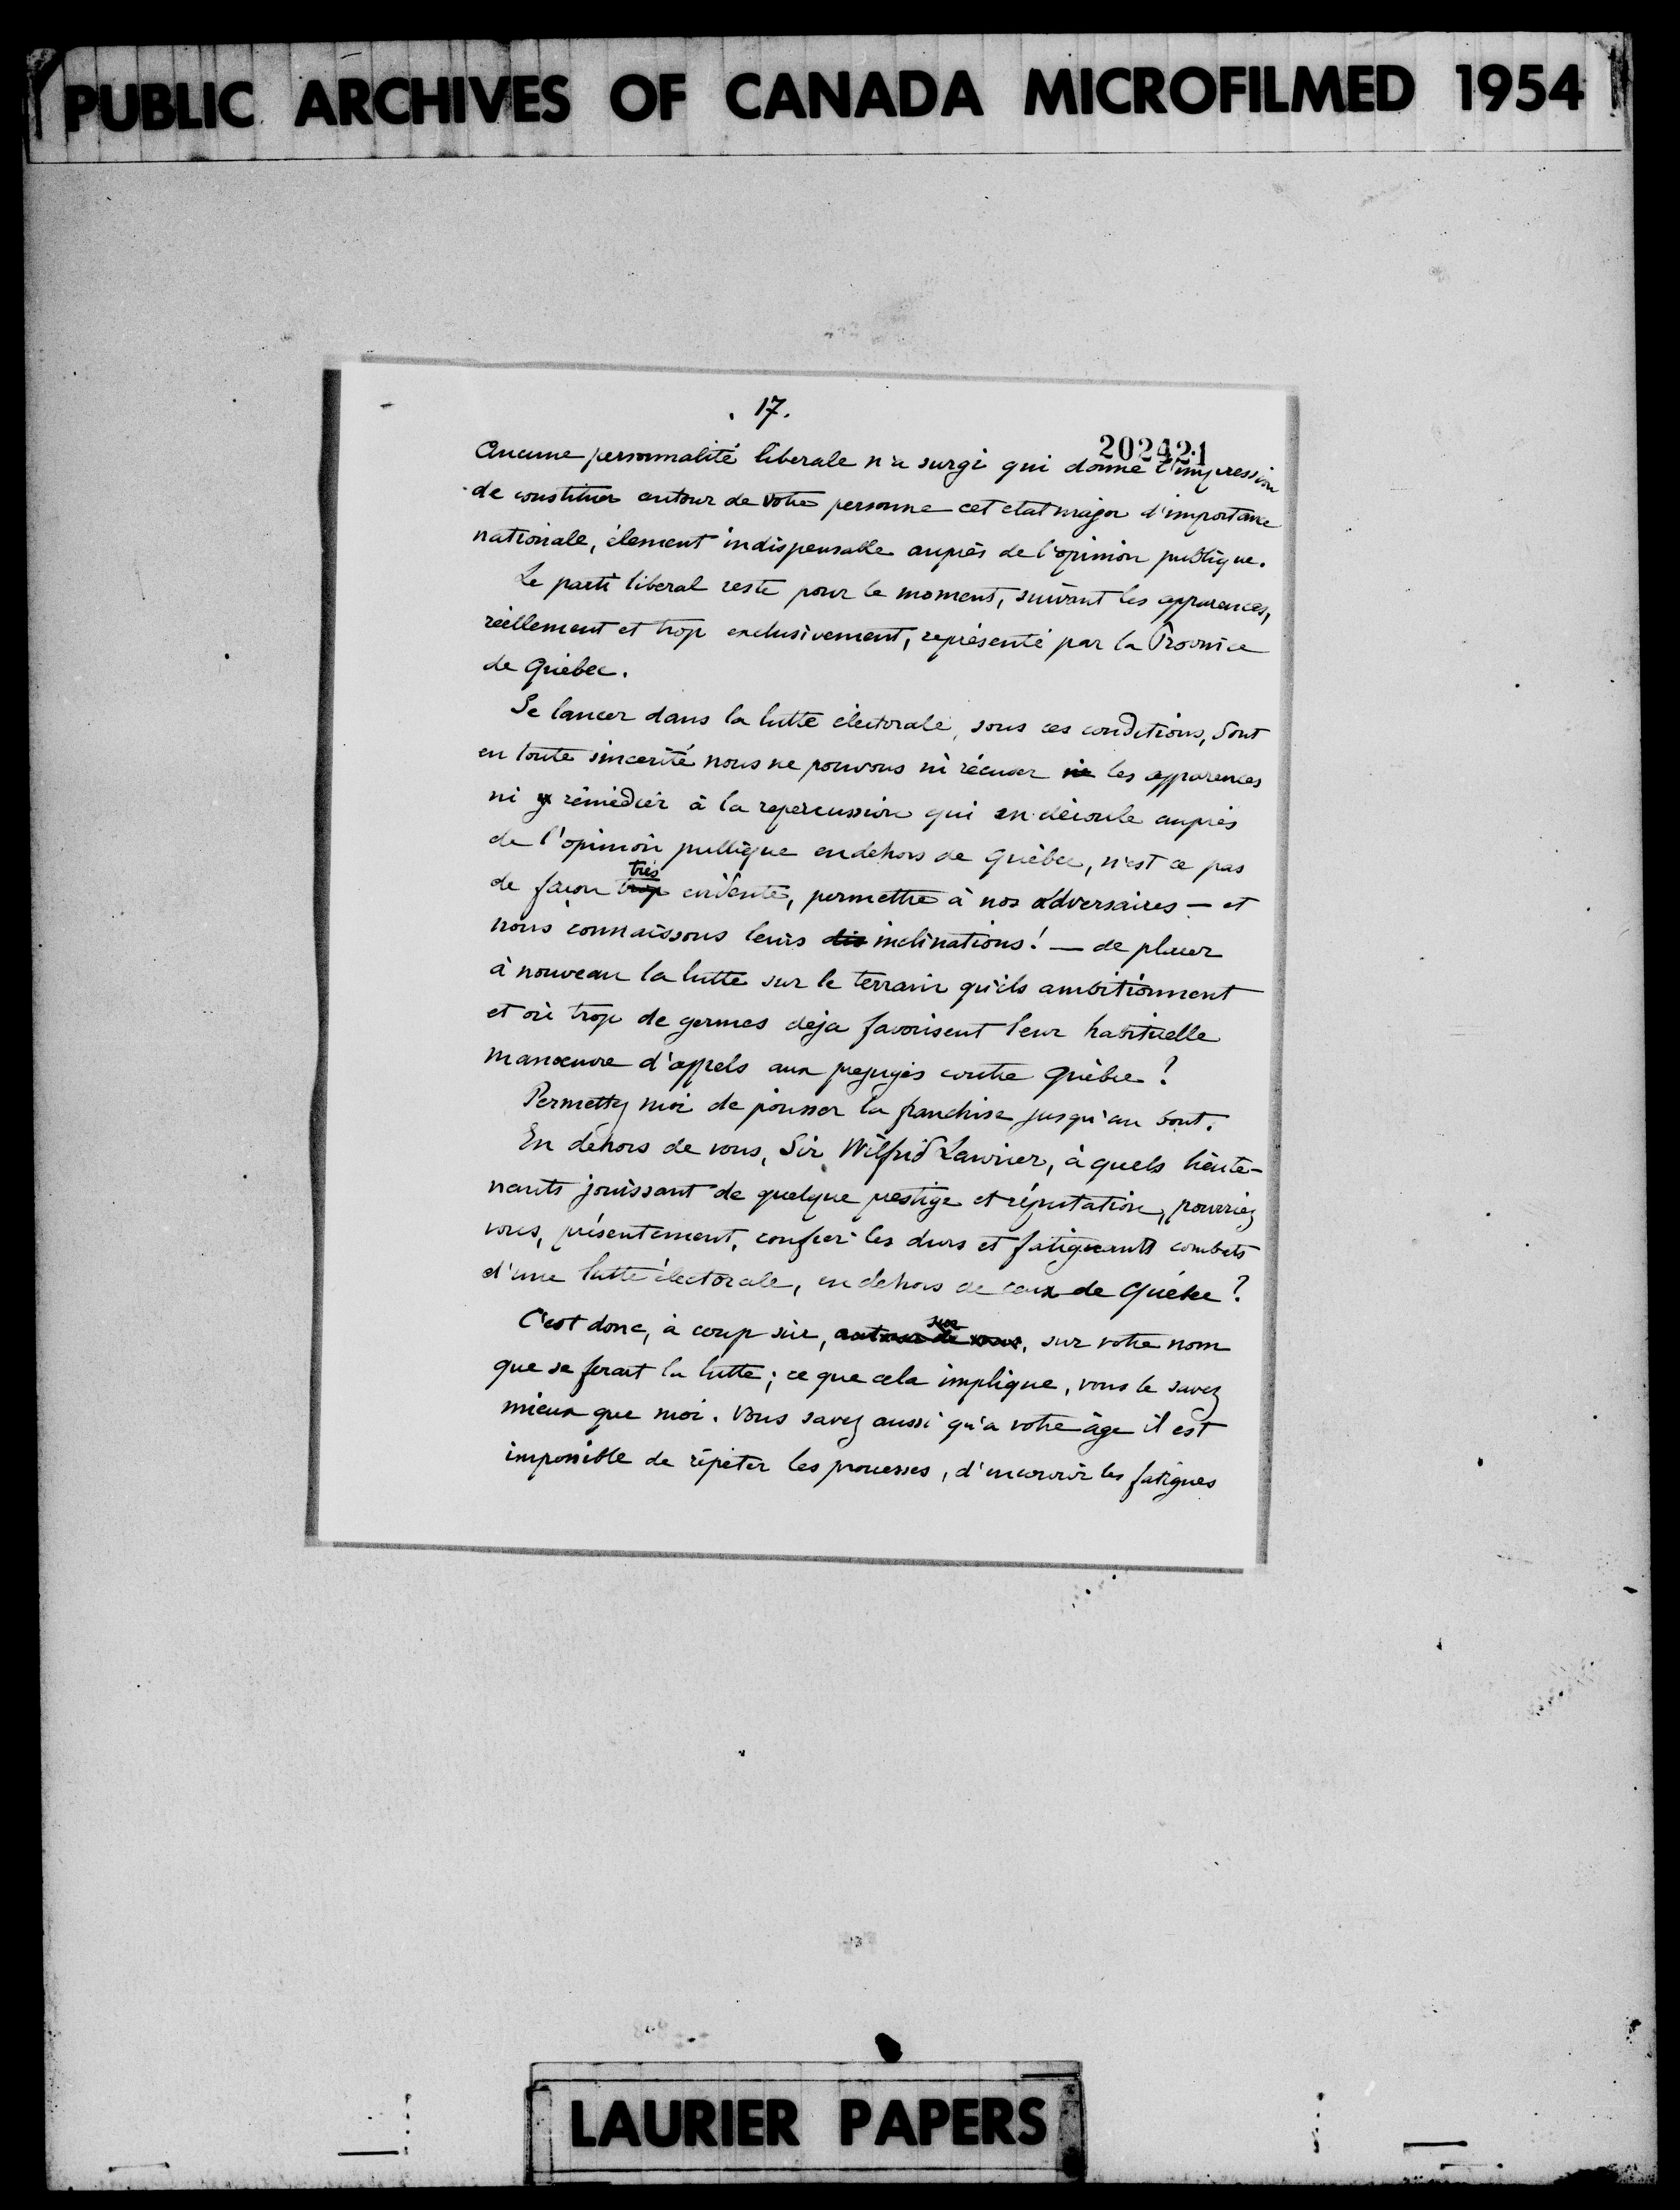 PUBLIC ARCHIVES OF CANADA MICROFILMED 1954
. 17.
202421
Aucune personnalité liberale n'a surgi qui donne l'impression
de constituer autour de votre personne cet etat major d'importance
nationale, élement indispensable auprès de l'opinion publique.
Le parti liberal reste pour le moment, suivant les apparences,
réellement et trop exclusivement, représenté par la Province
de Québec.
Se lancer dans la lutte électorale, sous ces conditions, dont
en toute sincerité nous ne pouvons ni récuser ni les apparences
ni y rémédier à la repercussion qui en découle auprès
de l'opinion publique en dehors de Québec, n'est ce pas
très
de façon trop évidente, permettre à nos adversaires — et
nous connaissons leurs dis inclinations! — de placer
à nouveau la lutte sur le terrain qu'ils ambitionnent
et où trop de germes deja favorisent leur habituelle
manœuvre d'appels aux préjugés contre Québec?
Permettez moi de pousser la franchise jusqu'au bout.
En dehors de vous, Sir Wilfrid Laurier, à quels lieute-
nants jouissant de quelque prestige et réputation, pourriez
vous, présentement, confier les durs et fatiguants combats
d'une lutte électorale, en dehors de ceux de Québec?
sur
C'est donc, à coup sûr, autour de vous, sur votre nom
que se ferait la lutte; ce que cela implique, vous le savez
mieux que moi. Vous savez aussi qu'a votre âge il est
impossible de répéter les prouesses, d'encourir les fatigues
LAURIER PAPERS